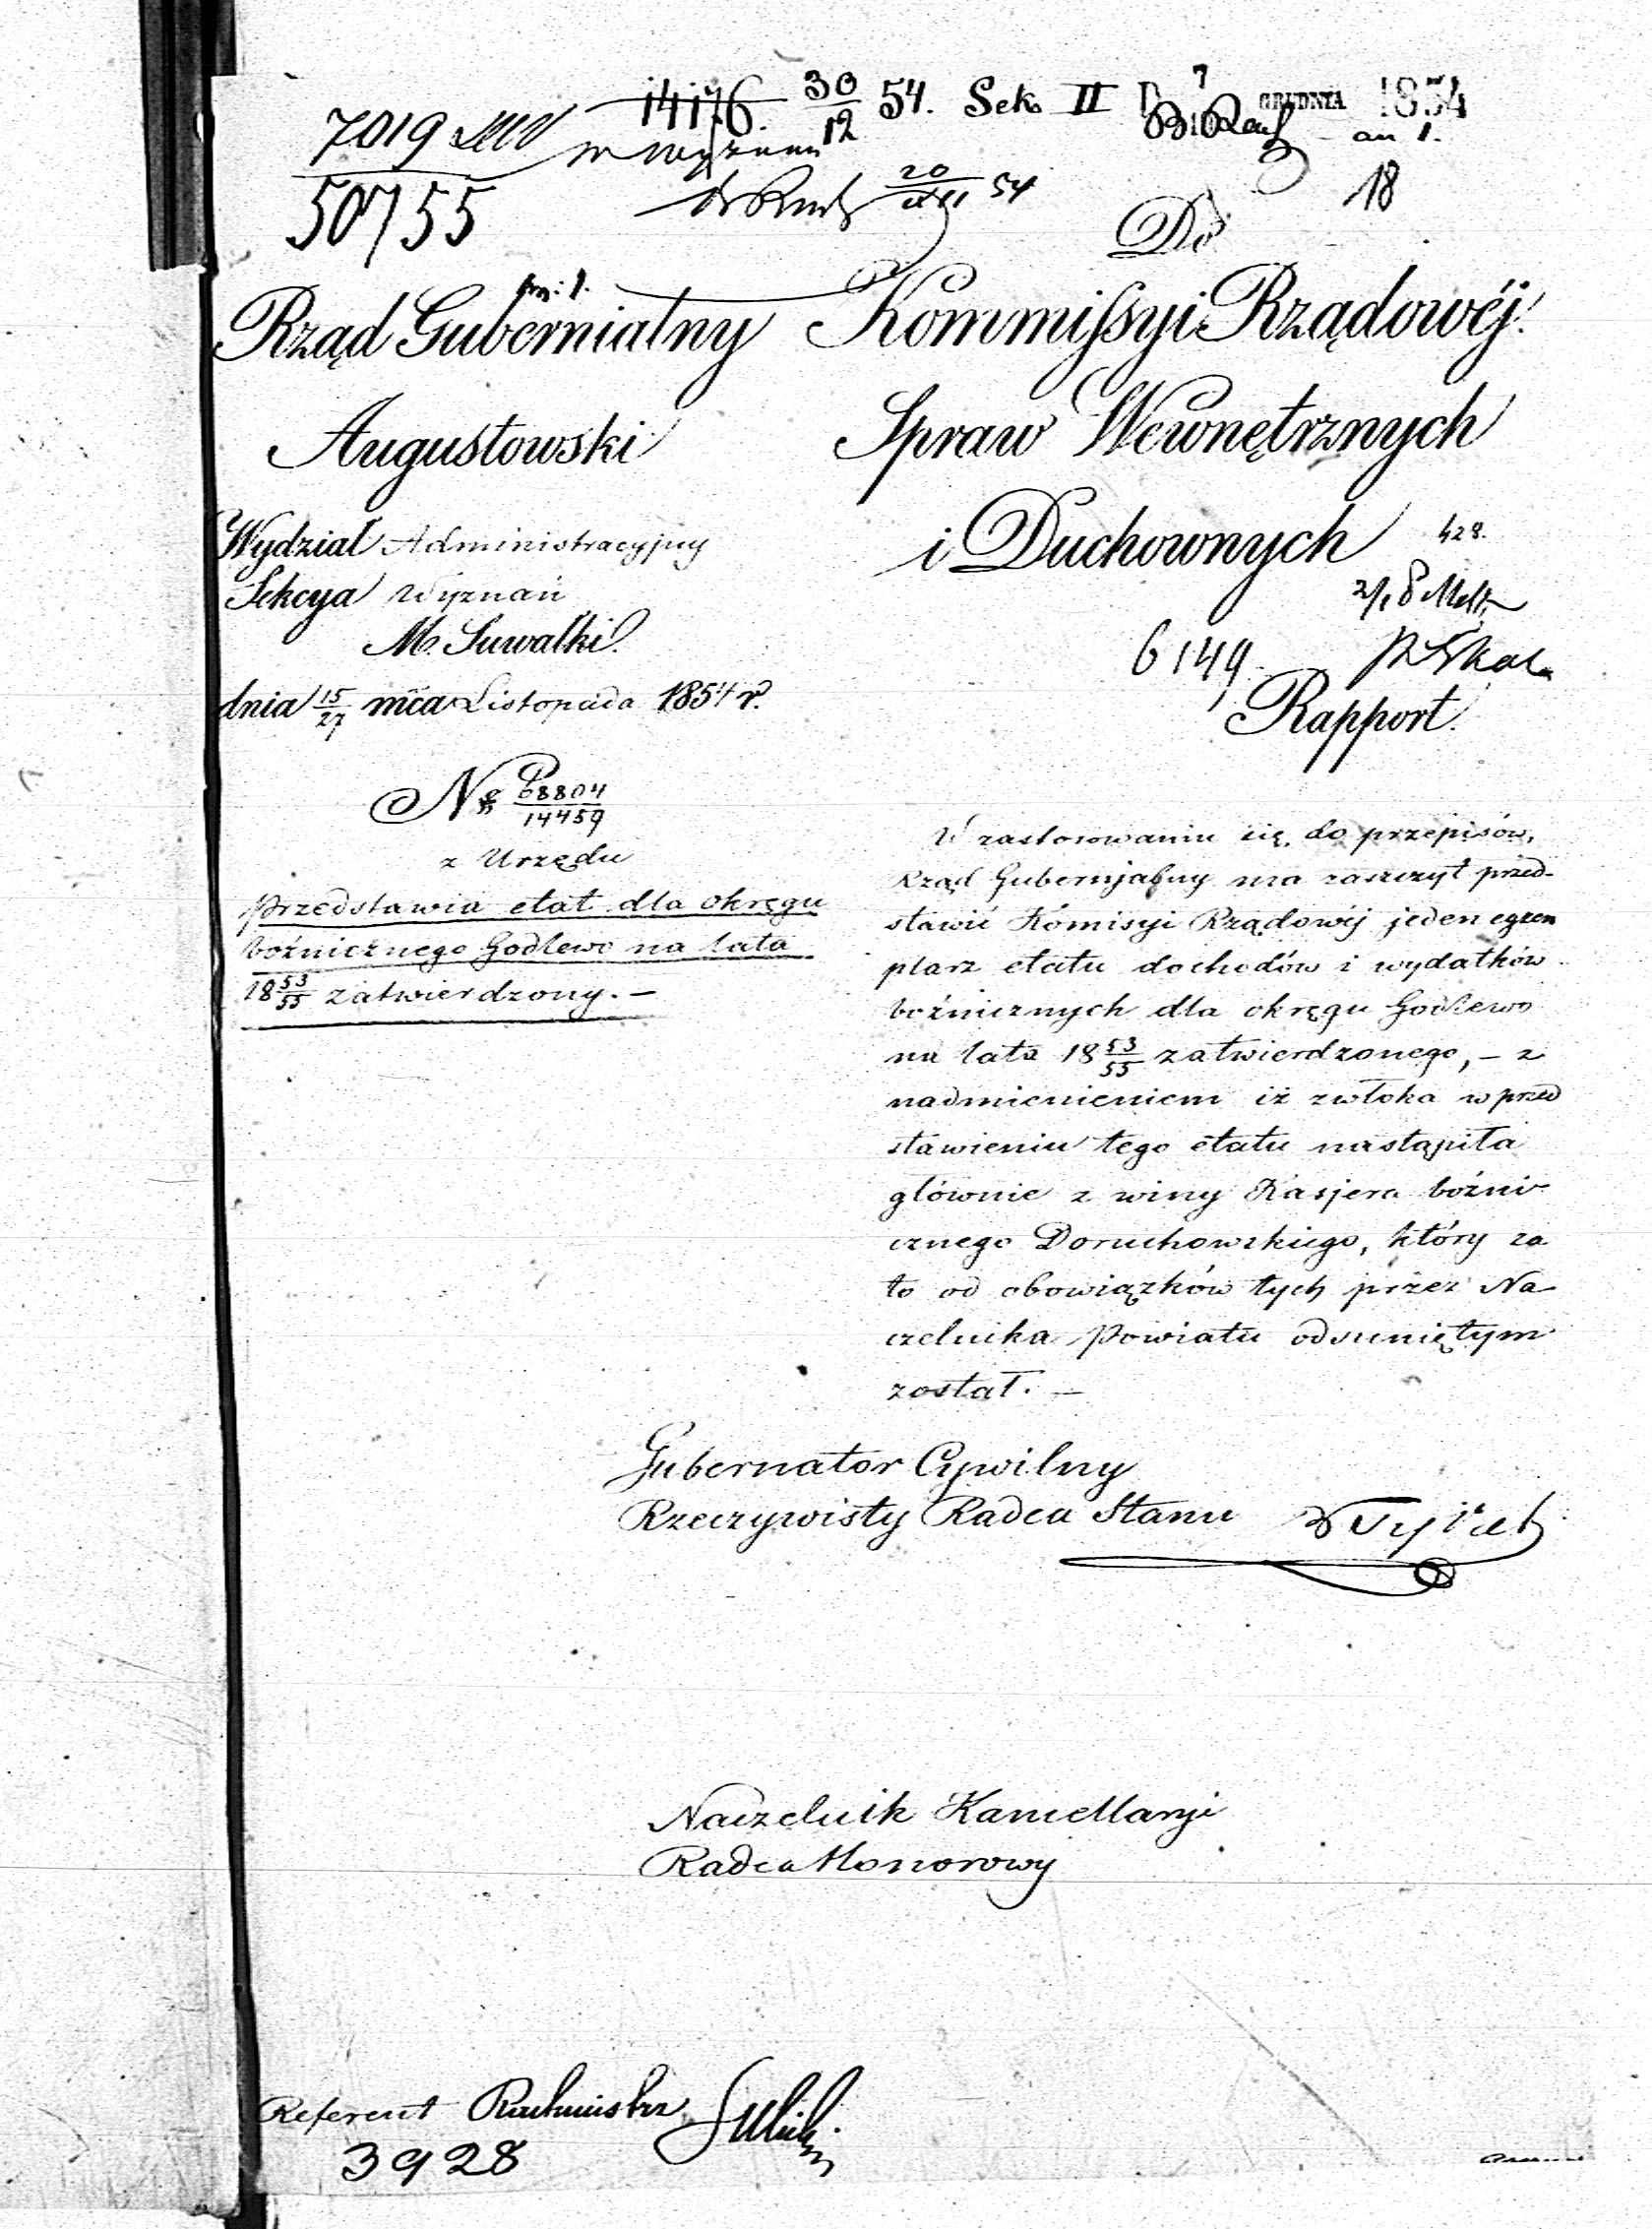 14176. 30/12 54. Sek. II 7 GRUDNIA 1854
7019
50755
20/XII 54
18
Do
Rząd Gubernialny
Augustowski
Wydział Administracyjny
Sekcya Wyznań
M. Suwałki.
dnia 15/27 mca Listopada 1854 r.
No 68804/14459
z Urzędu
przedstawia etat dla okręgu
bożnicznego Godlewo na lata
18 53/55 zatwierdzony. —
Kommissyi Rządowéj
Spraw Wewnętrznych
i Duchownych
428.
6149
Rapport.
W zastosowaniu się do przepisów,
Rząd Gubernjalny ma zaszczyt przed-
stawić Komisyi Rządowéj jeden egzem
plarz etatu dochodów i wydatków
bożnicznych dla okręgu Godlewo
na lata 18 53/55 zatwierdzonego, — z
nadmienieniem iż zwłoka w przed
stawieniu tego etatu nastąpiła
głównie z winy Kasjera bożni
cznego Doruchowskiego, który za
to od obowiązków tych przez Na
czelnika Powiatu odsuniętym
został. —
Gubernator Cywilny
Rzeczywisty Radca Stanu
Naczelnik Kancellaryi
Radca Honorowy
Referent
3928